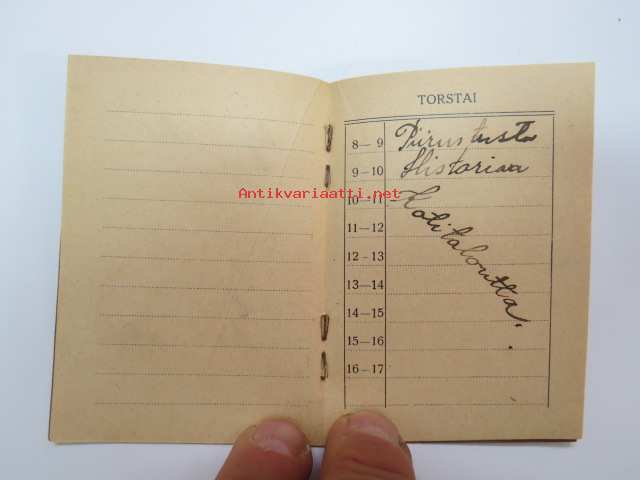 TORSTAI
8—9 Piirustusta
9—10 Historiaa
Antikvariaatti.net
10—11 Kotitaloutta.
11—12
12—13
13—14
14—15
15—16
16—17